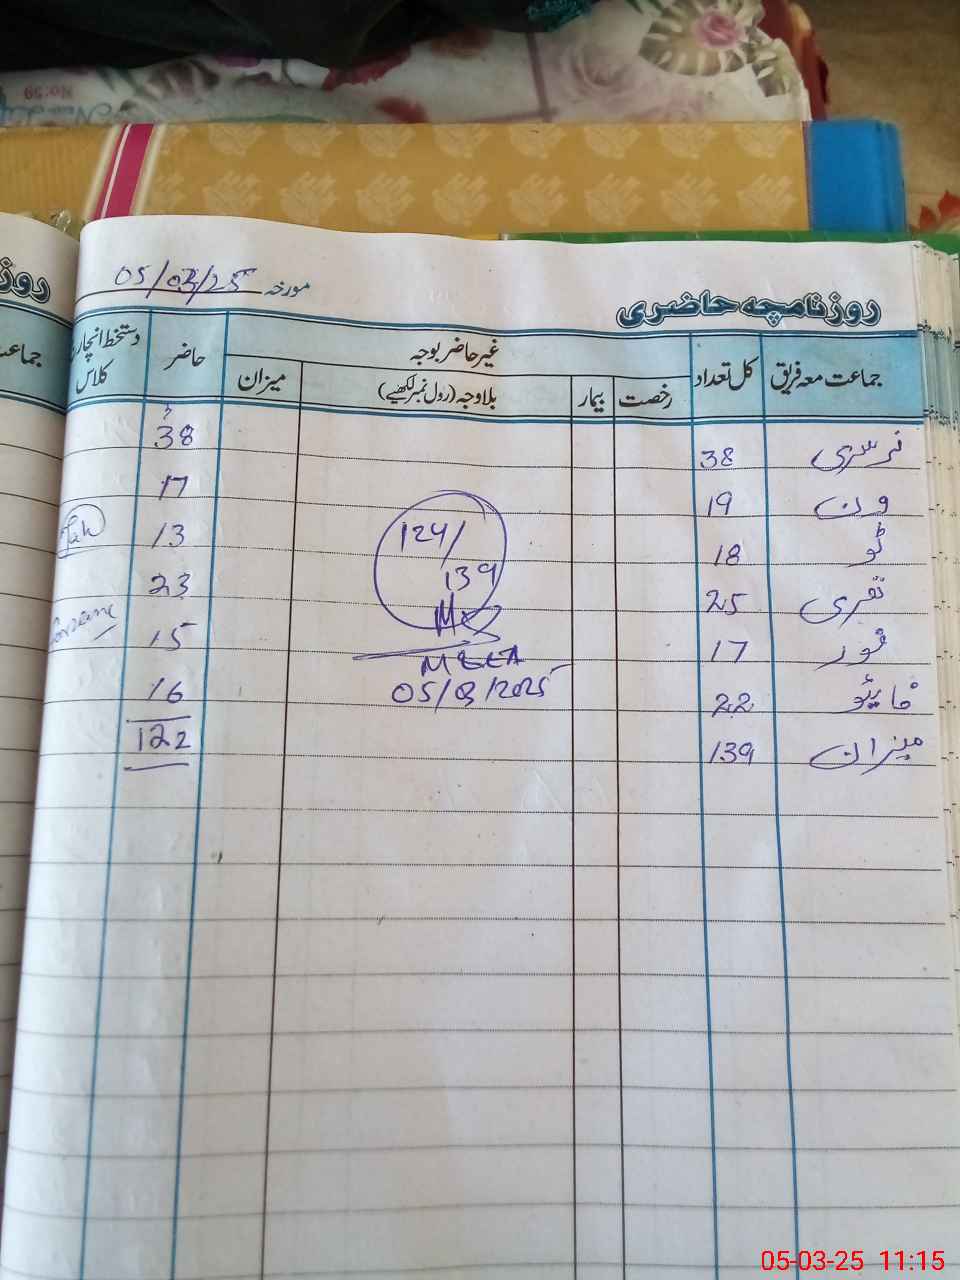 No:59
روزنامچہ حاضری
مورخہ 05/03/25
جماعت معہ فریق کل تعداد غیر حاضر بوجہ حاضر دستخط انچارج کلاس
رخصت بیمار بلاوجہ (رول نمبر لکھیے) میزان
نرسری 38 38
ون 19 17
ٹو 18 13
تھری 25 23
فور 17 15
فائیو 22 16
میزان 139 122
124/
139
MEEA
05/03/2025
05-03-25 11:15